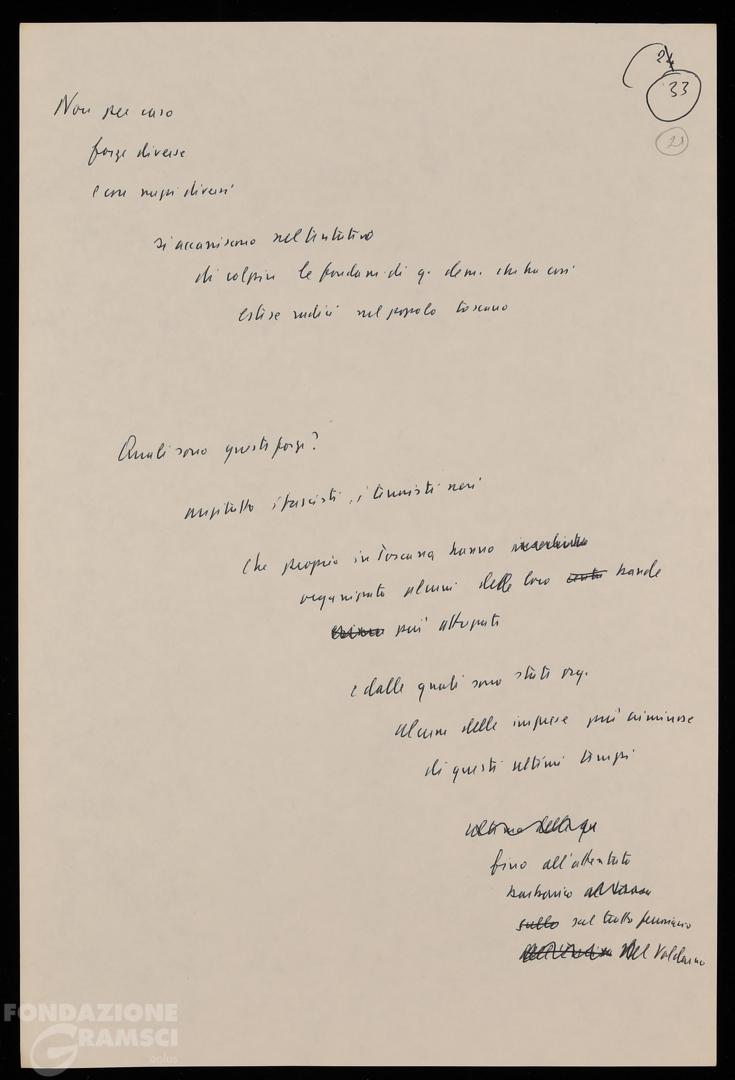 24
33
21
Non per caso
forze diverse
e con mezzi diversi
si accaniscono nel tentativo
di colpire le fondam. di q. dem. che ha così
estese radici nel popolo toscano
Quali sono queste forze?
anzitutto i fascisti, i terroristi neri
che proprio in Toscana hanno
organizzato alcuni delle loro bande
più attrezzate
e dalle quali sono state org.
alcune delle imprese più criminose
di questi ultimi tempi
fino all'attentato
barbarico
sullo sul tratto ferroviario
del Valdarno
FONDAZIONE
GRAMSCI
onlus